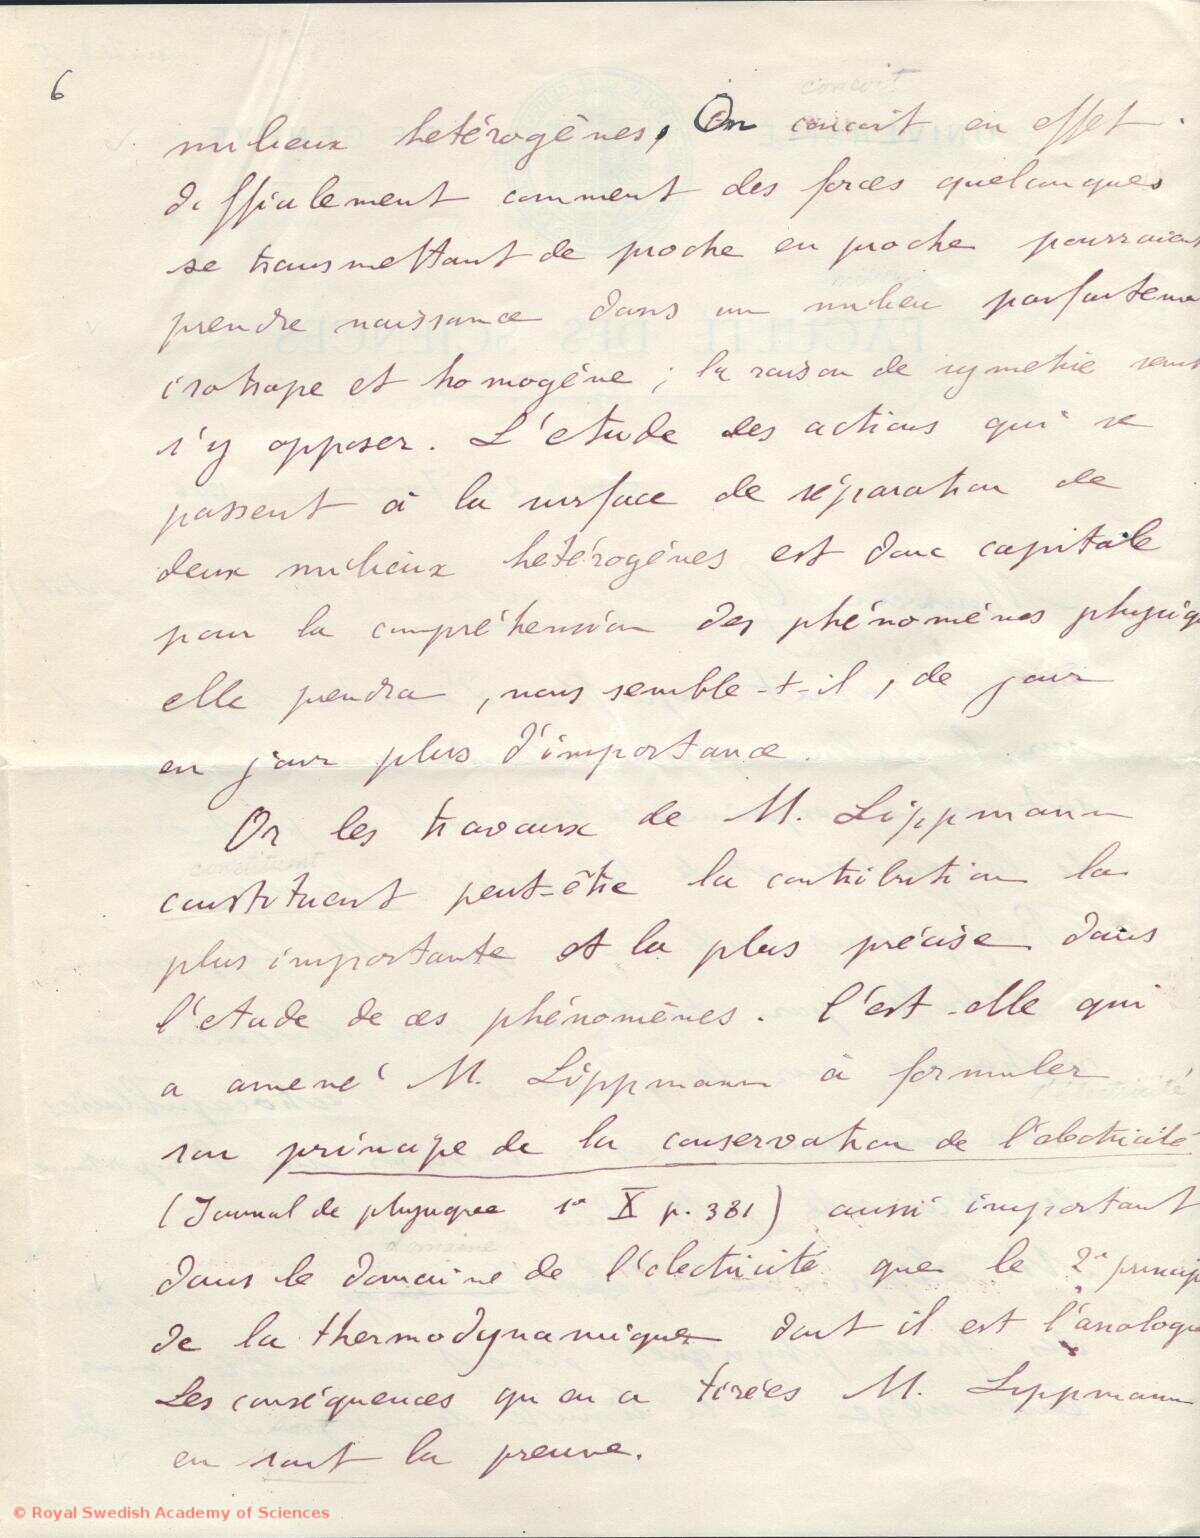 6
conçoit
milieux hetérogènes, On concoit en effet
difficilement comment des forces quelconques
se transmettant de proche en proche pourraient
prendre naissance dans un milieu parfaitemen
isotrope et homogène ; la raison de symetrie
s'y opposer. L'etude des actions qui se
passent à la surface de séparation de
deux milieux hétérogènes est donc capitale
pour la compréhension des phénomènes physiq
elle prendra, nous semble-t-il, de jour
en jour plus d'importance.
Or les travaux de M. Lippmann
constituent peut-être la contribution la
plus importante et la plus précise dans
l'etude de ces phénomènes. C'est elle qui
a amené M. Lippmann à formuler
son principe de la conservation de l'électricité
(Journal de physique 1re X p. 381) aussi important
domaine
dans le domaine de l'électricité que le 2e princip
de la thermodynamique dont il est l'analogue
Les conséquences qu'en a tirées M. Lippmann
en sont la preuve.
© Royal Swedish Academy of Sciences